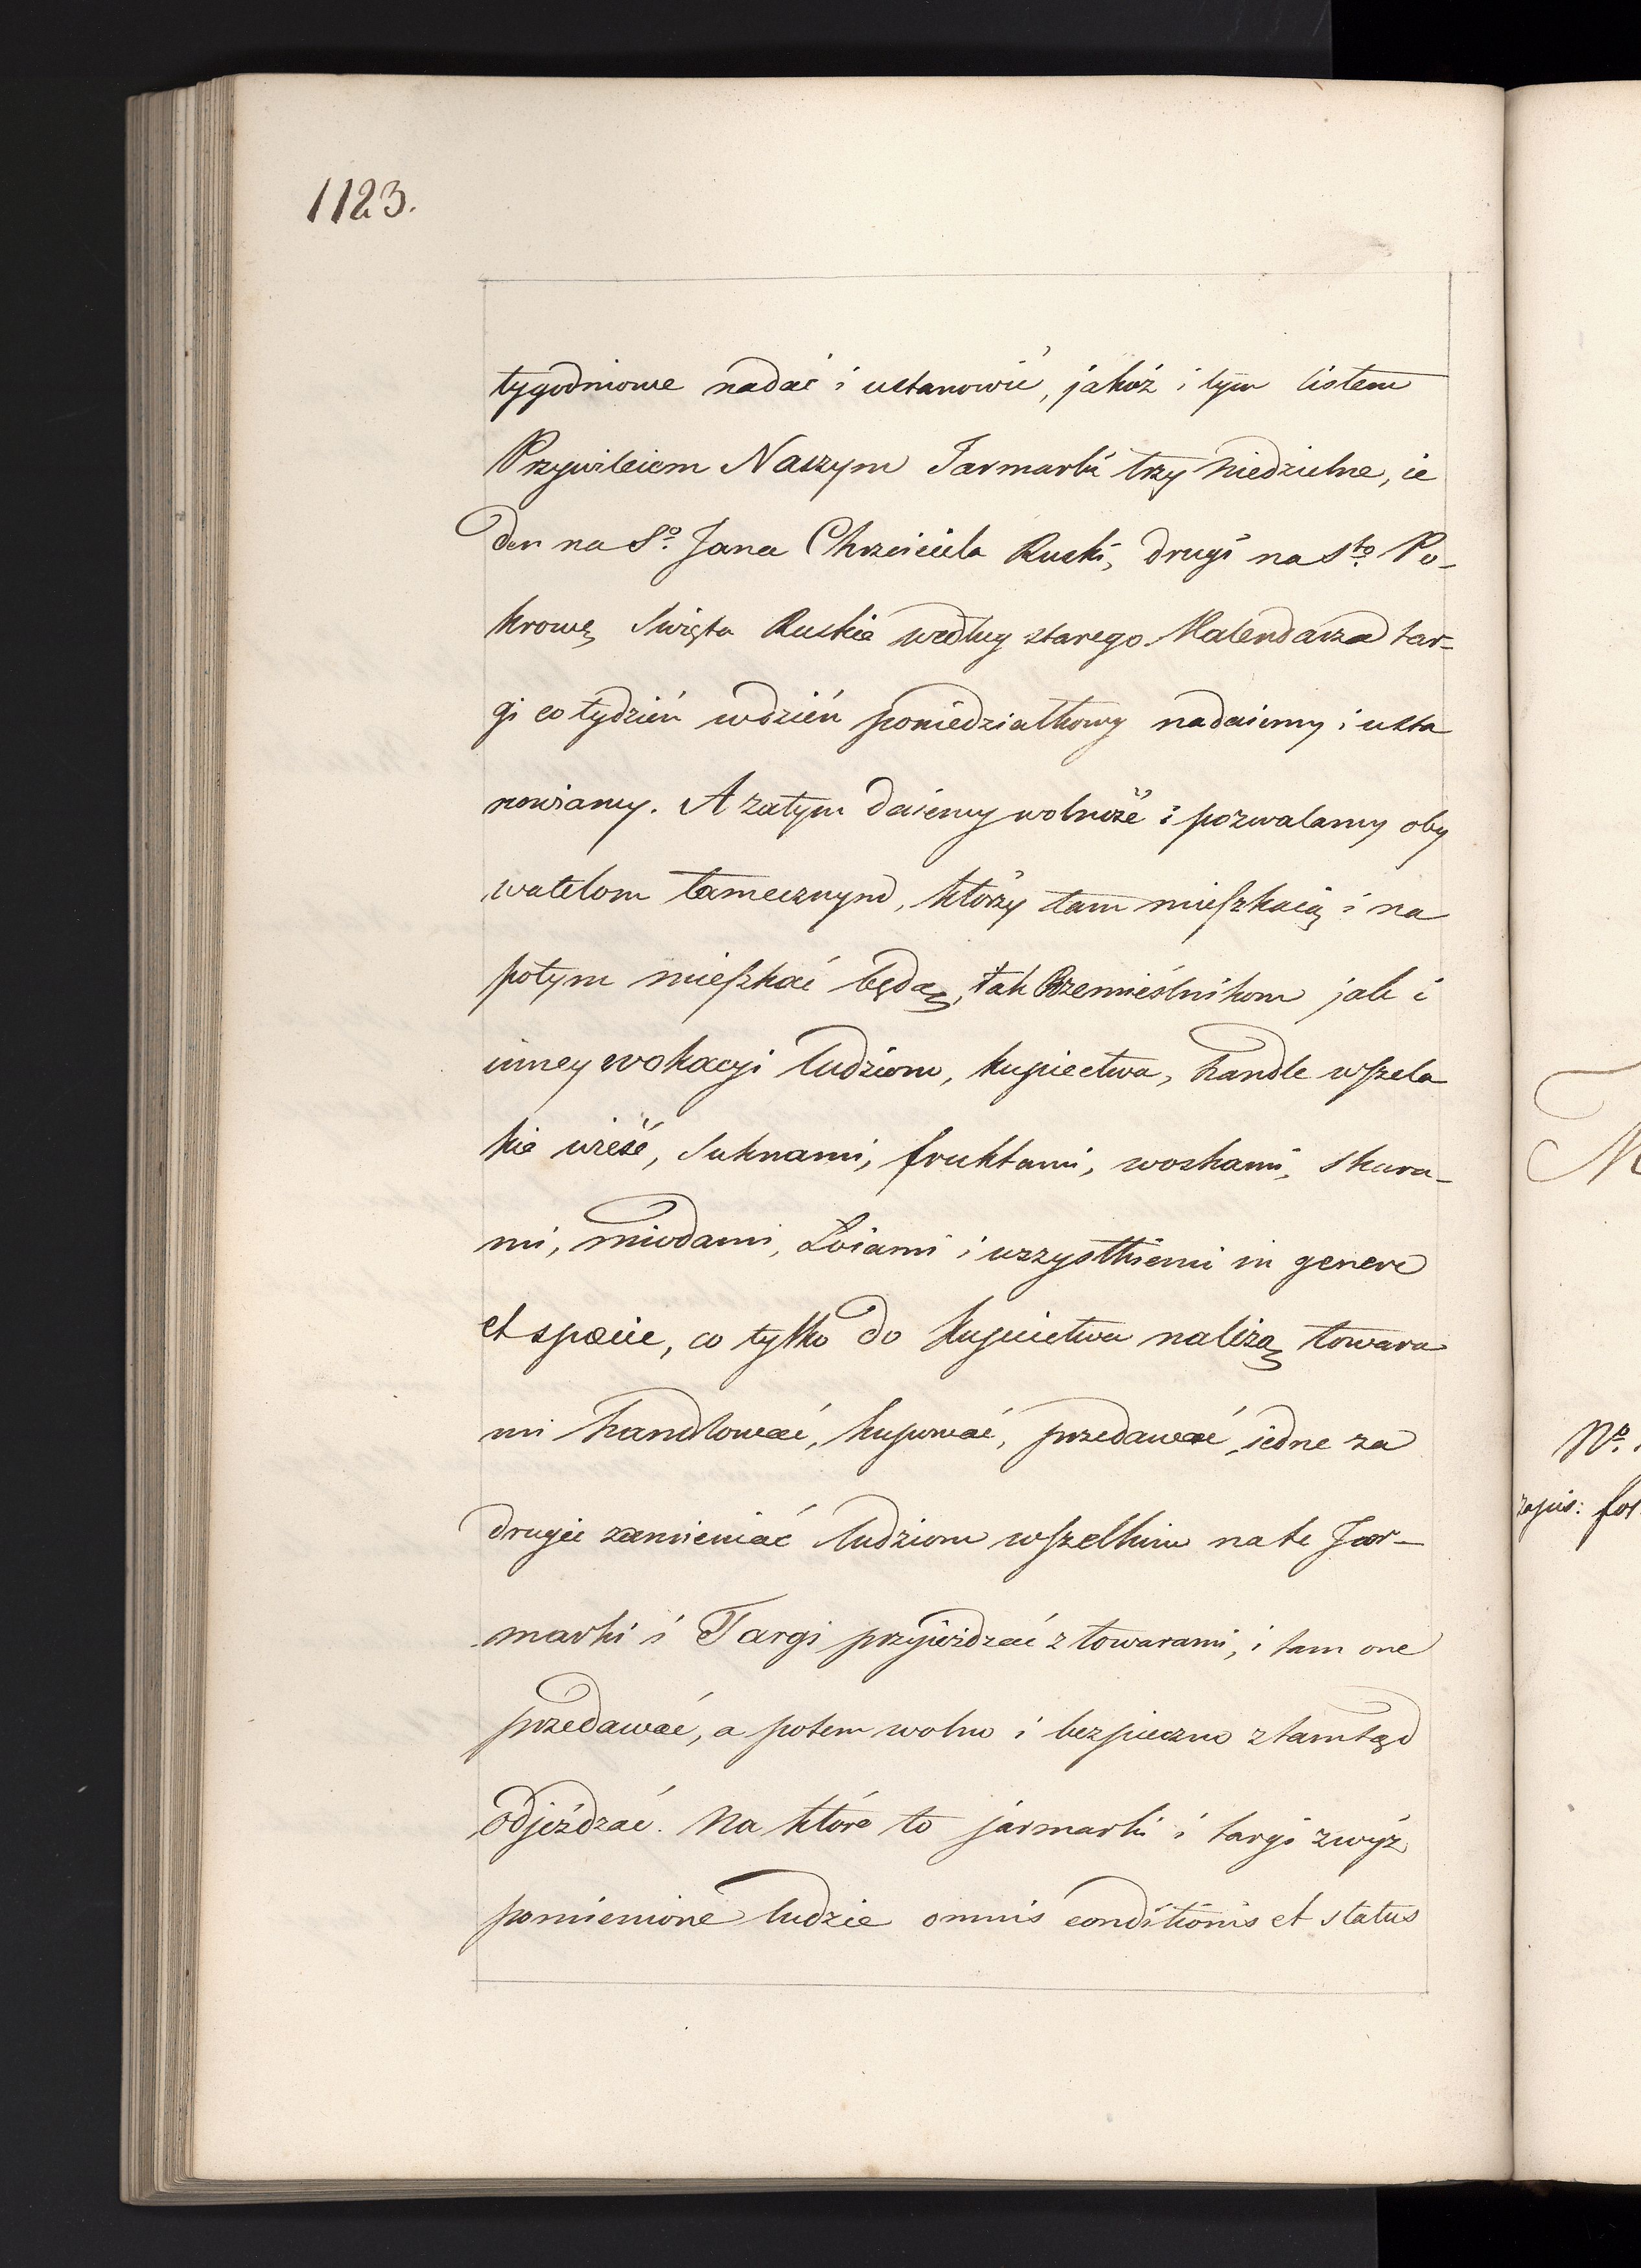 1123.
tygodniowe nadać i ustanowić, jakóż i tym listem
Przywileiem Naszym Jarmarki trzy niedzielne, ie
den na Sº. Jana Chrzciciela Ruski, drugi na Sto Po-
krowę Święta Ruskie według starego Kalendarza tar-
gi co tydzień w dzień poniedziałkowy nadaiemy i usta
nowiamy. A zatym daiemy wolność i pozwalamy oby
watelom tamecznym, którzy tam mieszkaią i na
potym mieszkać będą, tak Rzemieślnikom jak i
inney wokacyi ludziom, kupiectwa, handle wszela
kie wieść, suknami, fruktami, woskami, skura-
mi, miodami, Łoiami i wszystkiemi in genere
et specie, co tylko do kupiectwa należą towara
mi handlować, kupować, przedawać, iedne za
drugie zamieniać ludziom wszelkim na te Jar-
marki i Targi przyieżdzać z towarami, i tam one
przedawać, a potem wolno i bezpieczno ztamtąd
odjeżdzać. Na które to jarmarki i targi zwyż
pomienione ludzie omnis conditionis et status
Nº.
zapis: fol